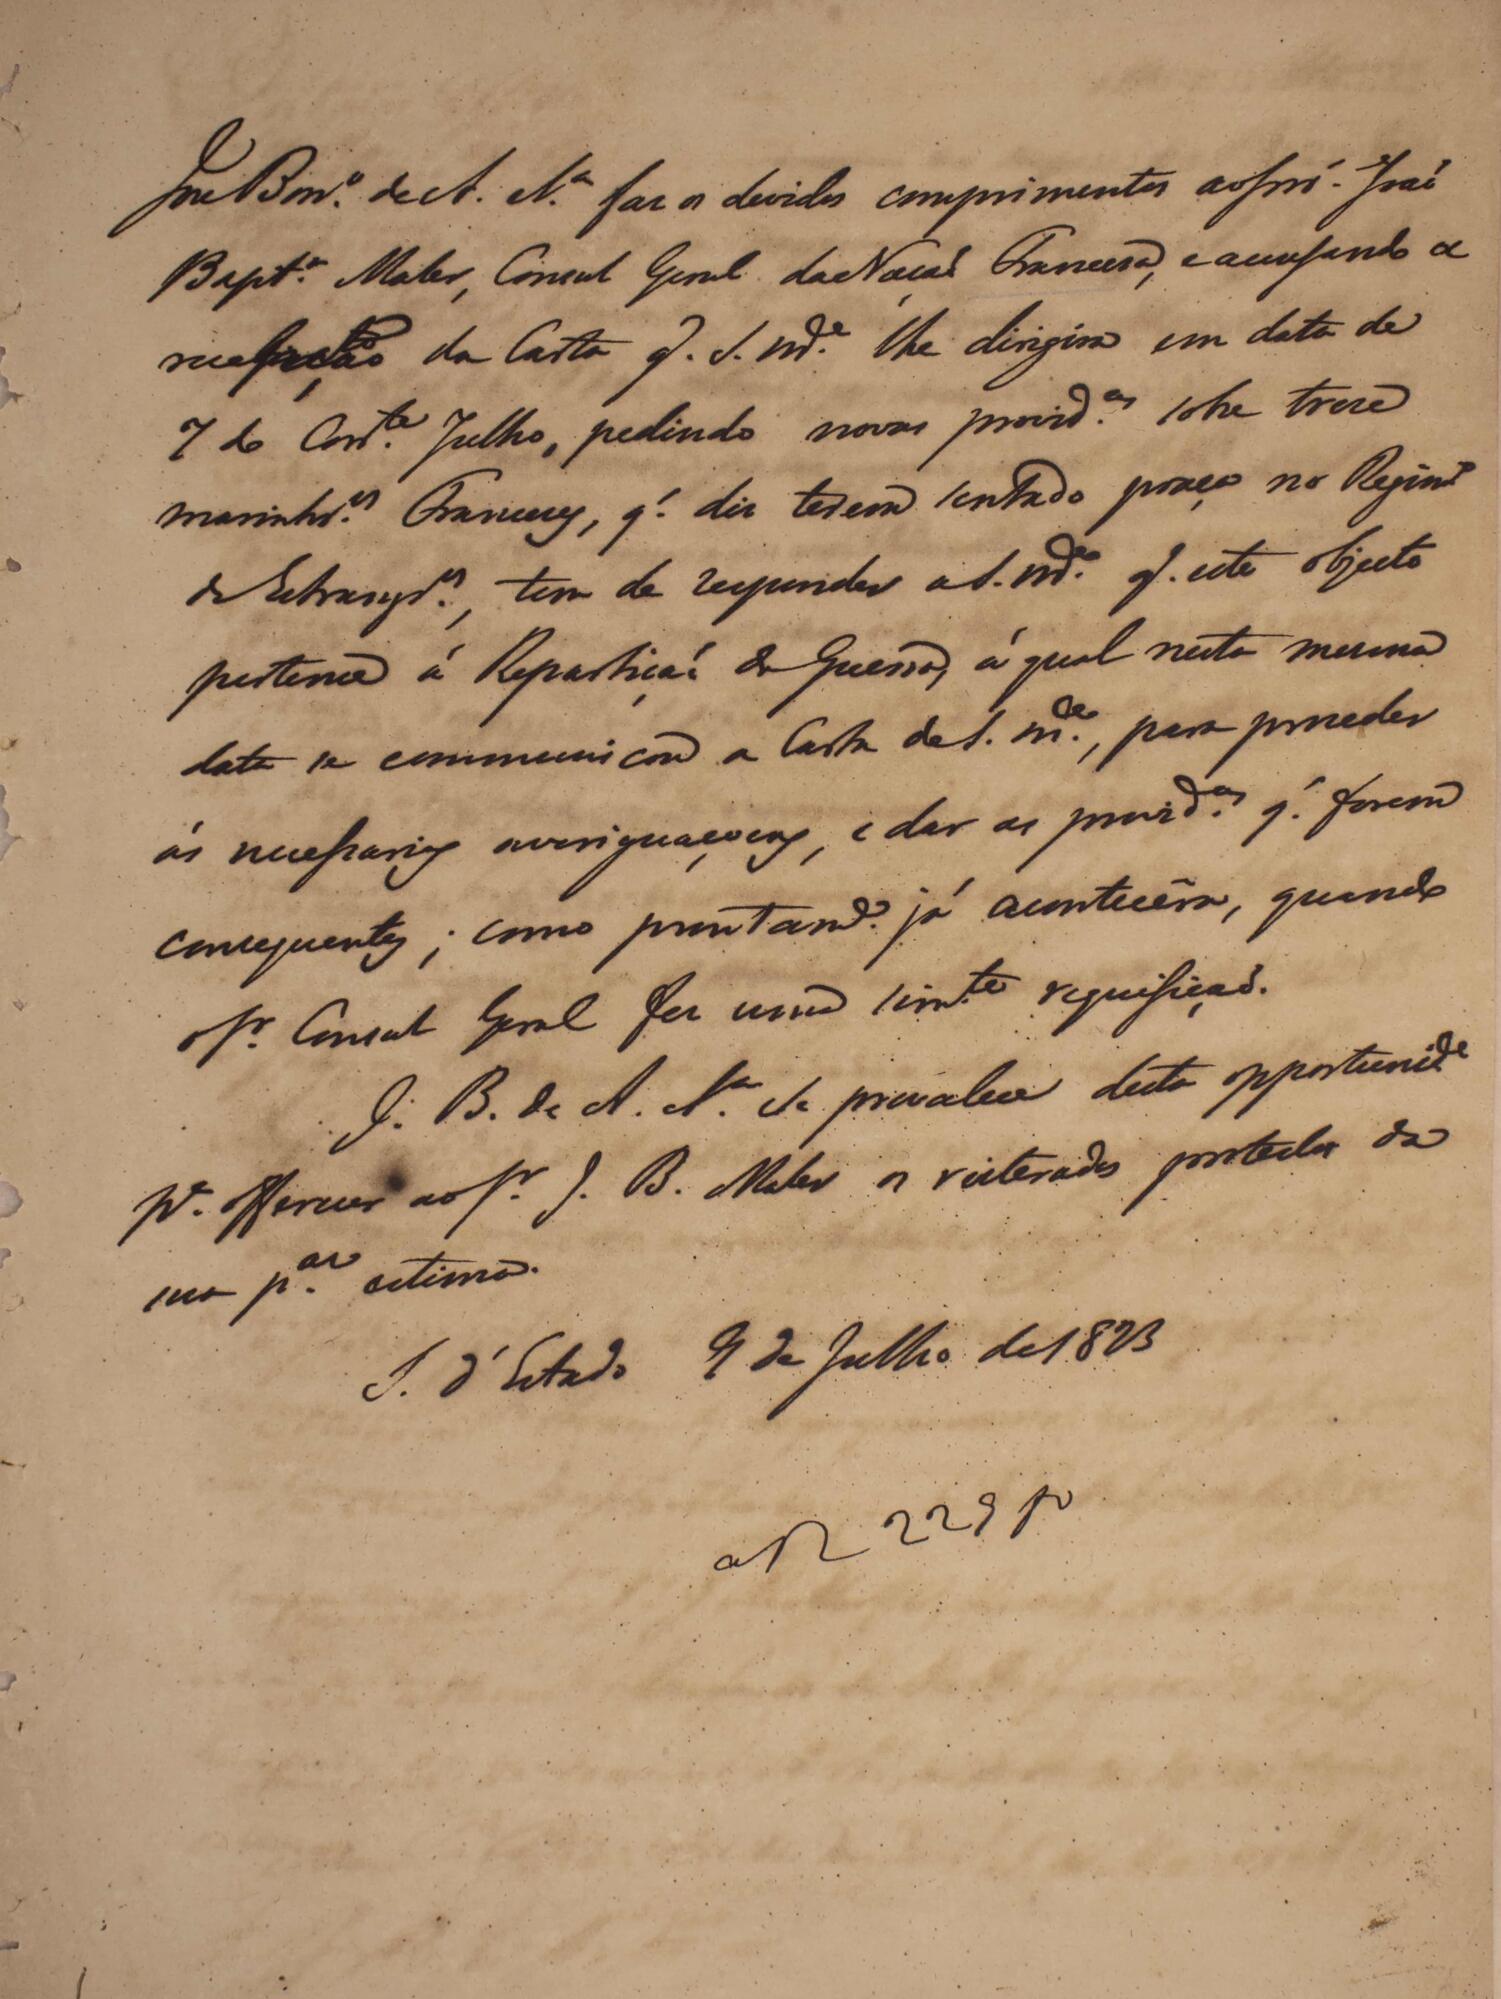 Joze Bon.º de A. A.ª faz os devidos comprimentos ao Snr. João
Bapt.ª Maler, Consul Geral da Nação Franceza, e accusando a
recepção da Carta q. S. M.ce lhe dirigira em data de
7 do Corr.te Julho, pedindo novas provid.as sobre treze
marinhr.os Francezes, q. diz terem sentado praça no Regim.to
de Estrangr.os, tem de responder a S. M.ce q. este objecto
pertence á Repartição da Guerra, á qual nesta mesma
data se communicou a Carta de S. M.ce, para proceder
ás necessarias averiguaçoens, e dar as provid.as q. forem
consequentes; como prontam.e já acontecêra, quando
o Sr. Consul Geral fez uma sim.te requisição.
J. B. de A. A.ª se prevalece desta opportunid.e
p.ª offerecer ao Sr. J. B. Maler os reiterados protestos da
sua p.ar estima.
S. d'Estado 9 de Julho de 1823
229